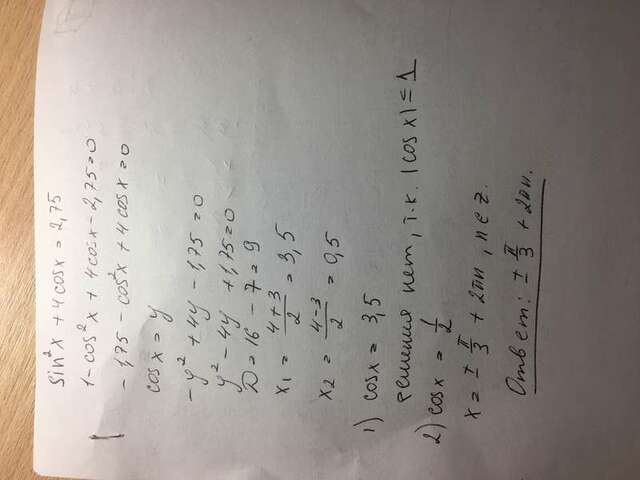 sin²x + 4cosx = 2,75
1 - cos²x + 4cosx - 2,75 = 0
- 1,75 - cos²x + 4cosx = 0
cosx = y
-y² + 4y - 1,75 = 0
y² - 4y + 1,75 = 0
D = 16 - 7 = 9
x₁ = (4+3)/2 = 3,5
x₂ = (4-3)/2 = 0,5
1) cosx = 3,5
решения нет, т.к. |cosx| ≤ 1
2) cosx = 1/2
x = ± π/3 + 2πn, n ∈ z.
Ответ: ± π/3 + 2πn.